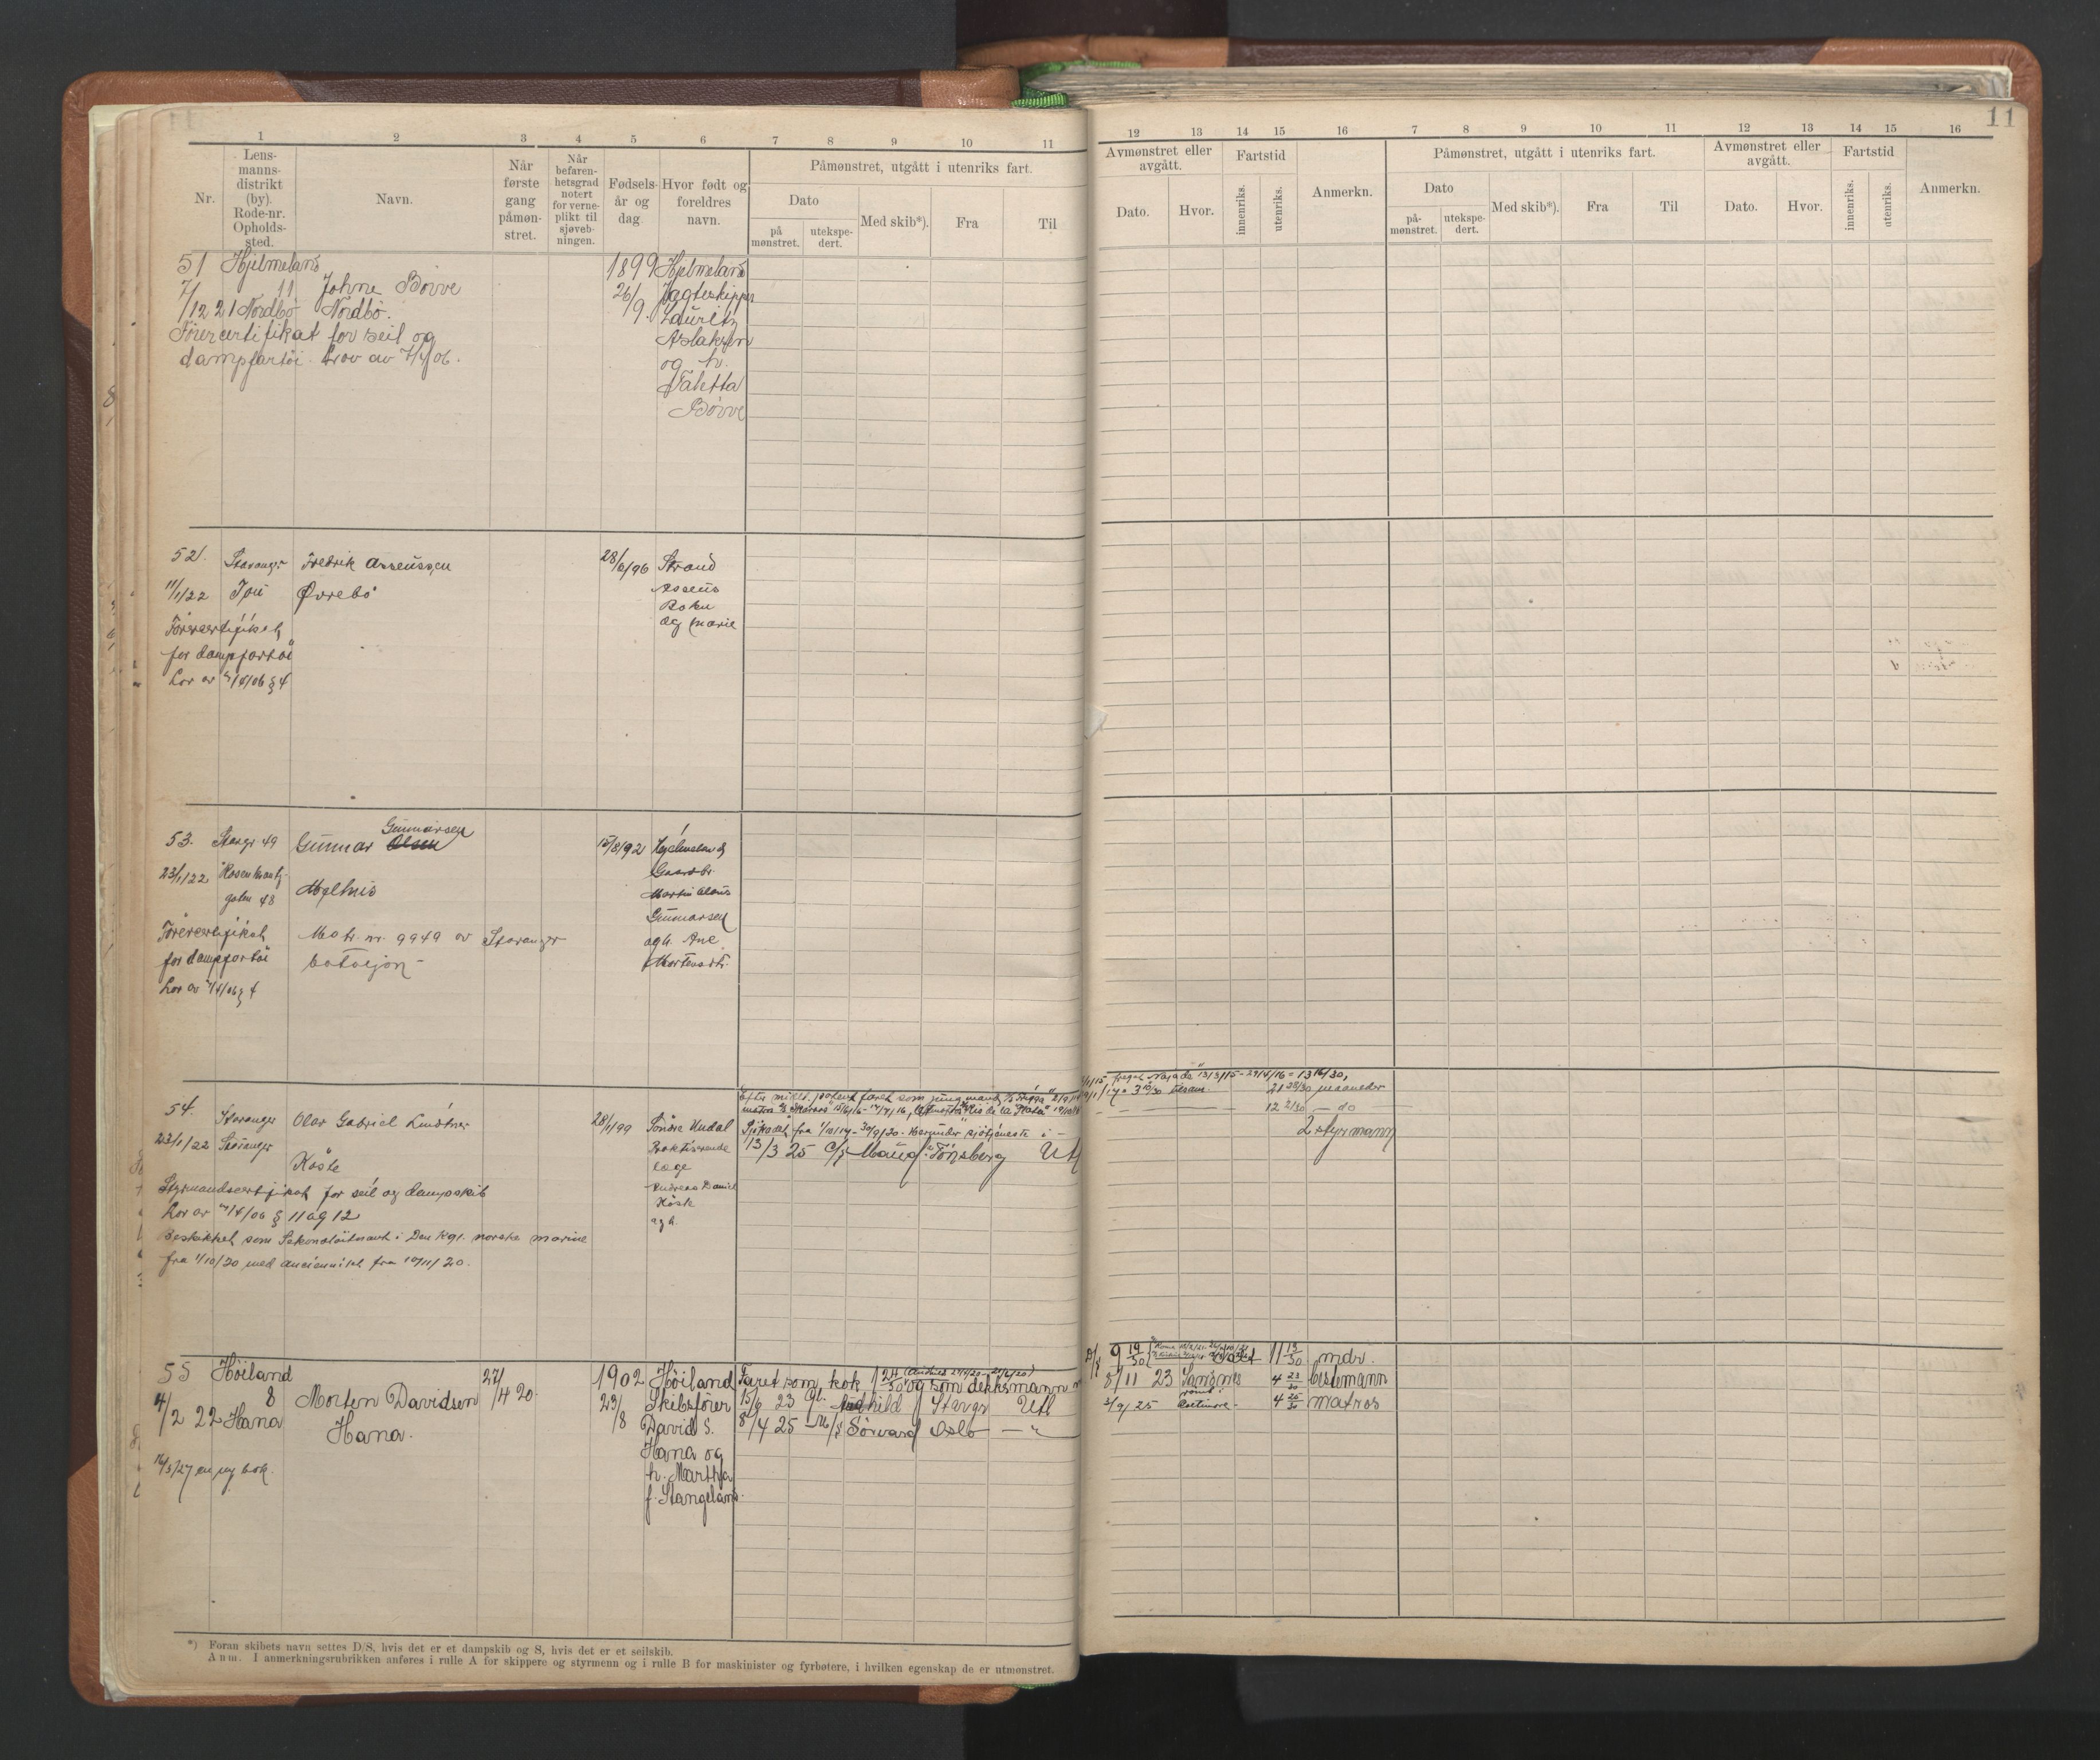 11
1 2 3 4 5 6 7 8 9 10 11
Nr.
Lens-
manns-
distrikt
(by).
Rode-nr.
Opholds-
sted.
Navn.
Når
første
gang
påmøn-
stret.
Når
befaren-
hetsgrad
notert
for verne-
plikt til
sjøveb-
ningen.
Fødsels-
år og
dag
Hvor født og
foreldres
navn.
Påmønstret, utgått i utenriks fart.
Dato
på
mønstret.
utekspe-
dert.
Med skib*).
Fra
Til
12 13 14 15 16 7 8 9 10 11 12 13 14 15 16
Avmønstret eller
avgått.
Dato.
Hvor.
Fartstid
innenriks.
utenriks.
Anmerkn.
Påmønstret, utgått i utenriks fart.
Dato
på-
mønstret.
utekspe-
dert.
Med skib*).
Fra
Til
Avmønstret eller
avgått.
Dato.
Hvor.
Fartstid
innenriks.
utenriks.
Anmerkn.
51 Hjelmeland 1899 Hjelmeland
7/12 21 11 Johne Bøvve 26/9. Jagteskipper
Nordbø Nordbø. Lauritz
Førercertifikat for seil og Aslaksen
dampfartøi Lov av 7/4 06. og h.
Valetta
Bøvve
52. Stavanger Fredrik Asseussen 28/6/96 Strand
11/1/22 Jøu Øvrebö Asseus
Førercertifikat og Marie
for dampfartøi
Lov av 7/4/06 § 4
53. Stavgr 49 Gunnar Olsen Gunnarsen 15/8/92 Hjelmeland
23/1/22 Rosenkrantz- Gaardbr.
gaten 48 Mælhus Martin Olaus
Gunnarsen
Førercertifikat Matr. nr. 9949 av Stavanger og h. Ane
for dampfartøi bataljon - Mortensdtr.
Lov av 7/4/06 § 4
54. Stavanger Olav Gabriel Lindtner 28/1/99 Söndre Undal
23/1/22 Stavanger Praktiserende
Köste læge
Andreas Daniel
og h.
Styrmandscertifikat for seil og dampskib
Lov av 7/4/06 § 11 og 12
Beskikket som Sekondløitnant i Den kgl. norske marine
fra 1/10/20 med anciennitet fra 10/11/20.
Sjøkadet fra 1/10/17 - 30/9/20. Herunder sjøtjeneste i -
13/3 25 Tønsberg Utl
21 28/30 maaneder
12 2/30 - do
2 styrmann
55 Höiland 27/4 20. 1902 Höiland Faret som kok og som dekksmann
4/2 22 8 Morten Davidsen 23/8 Skibsfører 15/6 23 Stavgr Utl
Hana Hana. David S. 8/4 25 M/S Sörvard Oslo - "
Hana og
h. Martha
f. Stangeland.
16/3/27 en ny bok.
9 19/30 11 13/30 mdr.
8/11 23 Sannes 4 23/30 bestemann
3/9/25 4 25/30 matros
*) Foran skibets navn settes D/S, hvis det er et dampskib og S, hvis det er et seilskib.
Anm. I anmerkningsrubrikken anføres i rulle A for skippere og styrmenn og i rulle B for maskinister og fyrbøtere, i hvilken egenskap de er utmønstret.